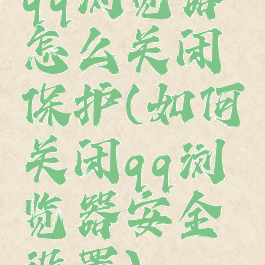 qq浏览器
怎么关闭
保护(如何
关闭qq浏
览器安全
设置)